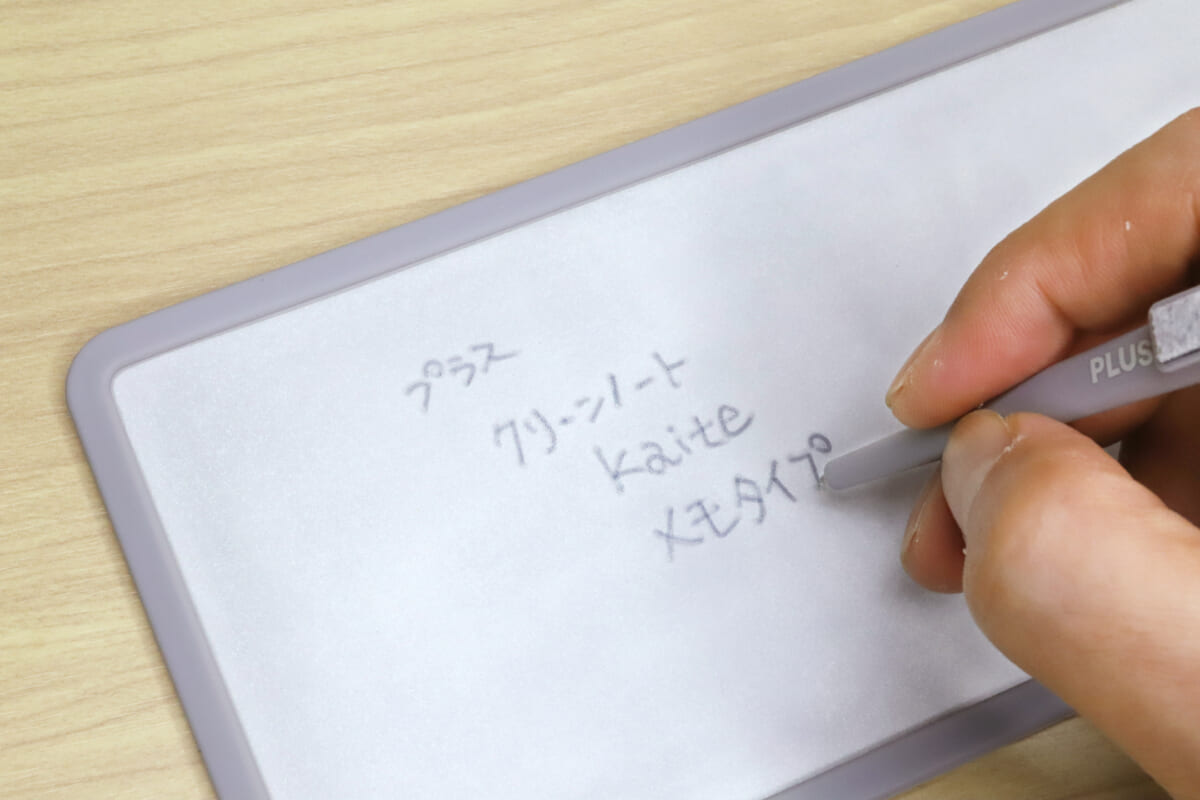 プラス
クリーンノート
kaite
メモタイプ
PLUS